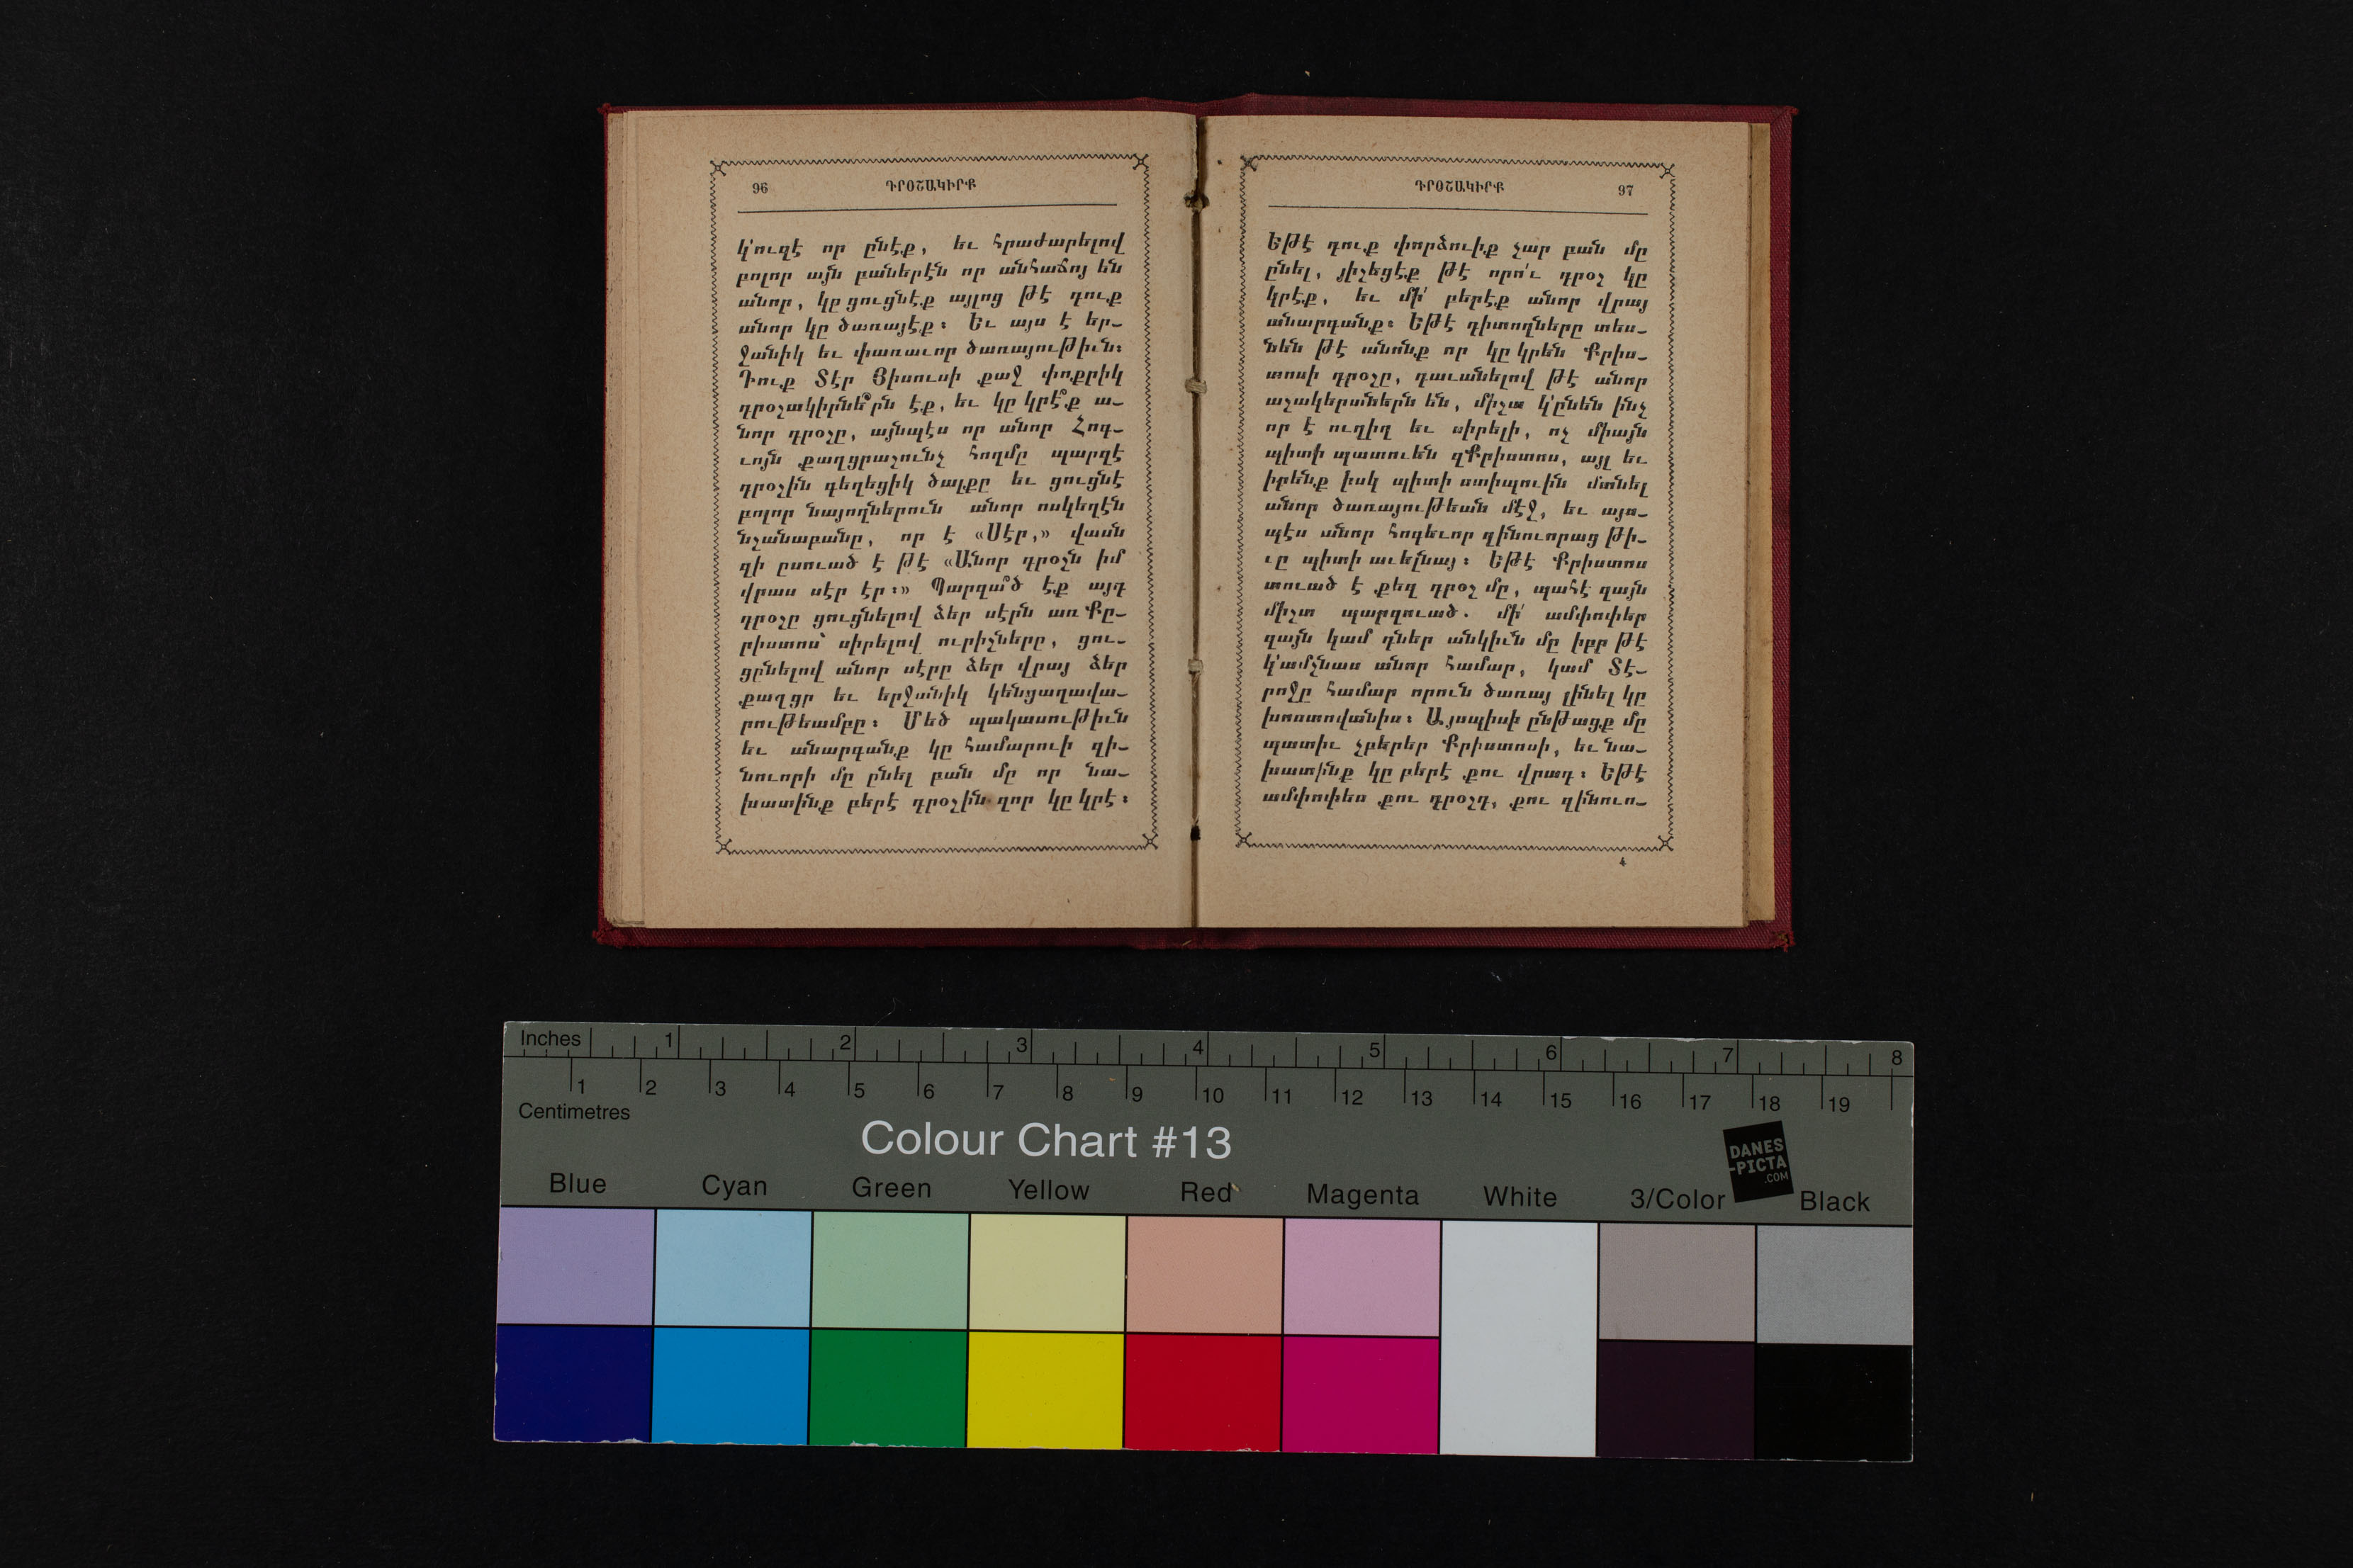 96 ԴՐՕՇԱԿԻՐՔ
կ՚ուզէ որ ընէք, եւ հրաժարելով
բոլոր այն բաներէն որ անհաճոյ են
անոր, կը ցուցնէք այլոց թէ դուք
անոր կը ծառայէք։ Եւ այս է եր–
ջանիկ եւ փառաւոր ծառայութիւն։
Դուք Տէր Յիսուսի քաջ փոքրիկ
դրօշակիրնե՞րն էք, եւ կը կրէ՞ք ա–
նոր դրօշը, այնպէս որ անոր Հոգ–
ւոյն քաղցրաշունչ հողմը պարզէ
դրօշին գեղեցիկ ծալքը եւ ցուցնէ
բոլոր նայողներուն անոր ոսկեղէն
նշանաբանը, որ է «Սէր,» վասն
զի ըսուած է թէ «Անոր դրօշն իմ
վրաս սէր էր։» Պարզա՞ծ էք այդ
դրօշը ցուցնելով ձեր սէրն առ Քը–
րիստոս՝ սիրելով ուրիշները, ցու–
ցընելով անոր սէրը ձեր վրայ ձեր
քաղցր եւ երջանիկ կենցաղավա–
րութեամբը։ Մեծ պակասութիւն
եւ անարգանք կը համարուի զի–
նուորի մը ընել բան մը որ նա–
խատինք բերէ դրօշին զոր կը կրէ։
ԴՐՕՇԱԿԻՐՔ 97
Եթէ դուք փորձուիք չար բան մը
ընել, յիշեցէք թէ որո՛ւ դրօշ կը
կրէք, եւ մի՛ բերէք անոր վրայ
անարգանք։ Եթէ դիտողները տես–
նեն թէ անոնք որ կը կրեն Քրիս–
տոսի դրօշը, դաւանելով թէ անոր
աշակերտներն են, միշտ կ՚ընեն ինչ
որ է ուղիղ եւ սիրելի, ոչ միայն
պիտի պատուեն զՔրիստոս, այլ եւ
իրենք իսկ պիտի ստիպուին մտնել
անոր ծառայութեան մէջ, եւ այս–
պէս անոր հոգեւոր զինուորաց թի–
ւը պիտի աւելնայ։ Եթէ Քրիստոս
տուած է քեզ դրօշ մը, պահէ զայն
միշտ պարզուած. մի՛ ամփոփեր
զայն կամ դներ անկիւն մը իբր թէ
կ՚ամչնաս անոր համար, կամ Տէ–
րոջը համար որուն ծառայ լինել կը
խոստովանիս։ Այսպիսի ընթացք մը
պատիւ չբերեր Քրիստոսի, եւ նա–
խատինք կը բերէ քու վրադ։ Եթէ
ամփոփես քու դրօշդ, քու զինուո–
4
Inches 1 2 3 4 5 6 7 8
1 2 3 4 5 6 7 8 9 10 11 12 13 14 15 16 17 18 19
Centimetres
Colour Chart #13
DANES
-PICTA
.COM
Blue Cyan Green Yellow Red Magenta White 3/Color Black